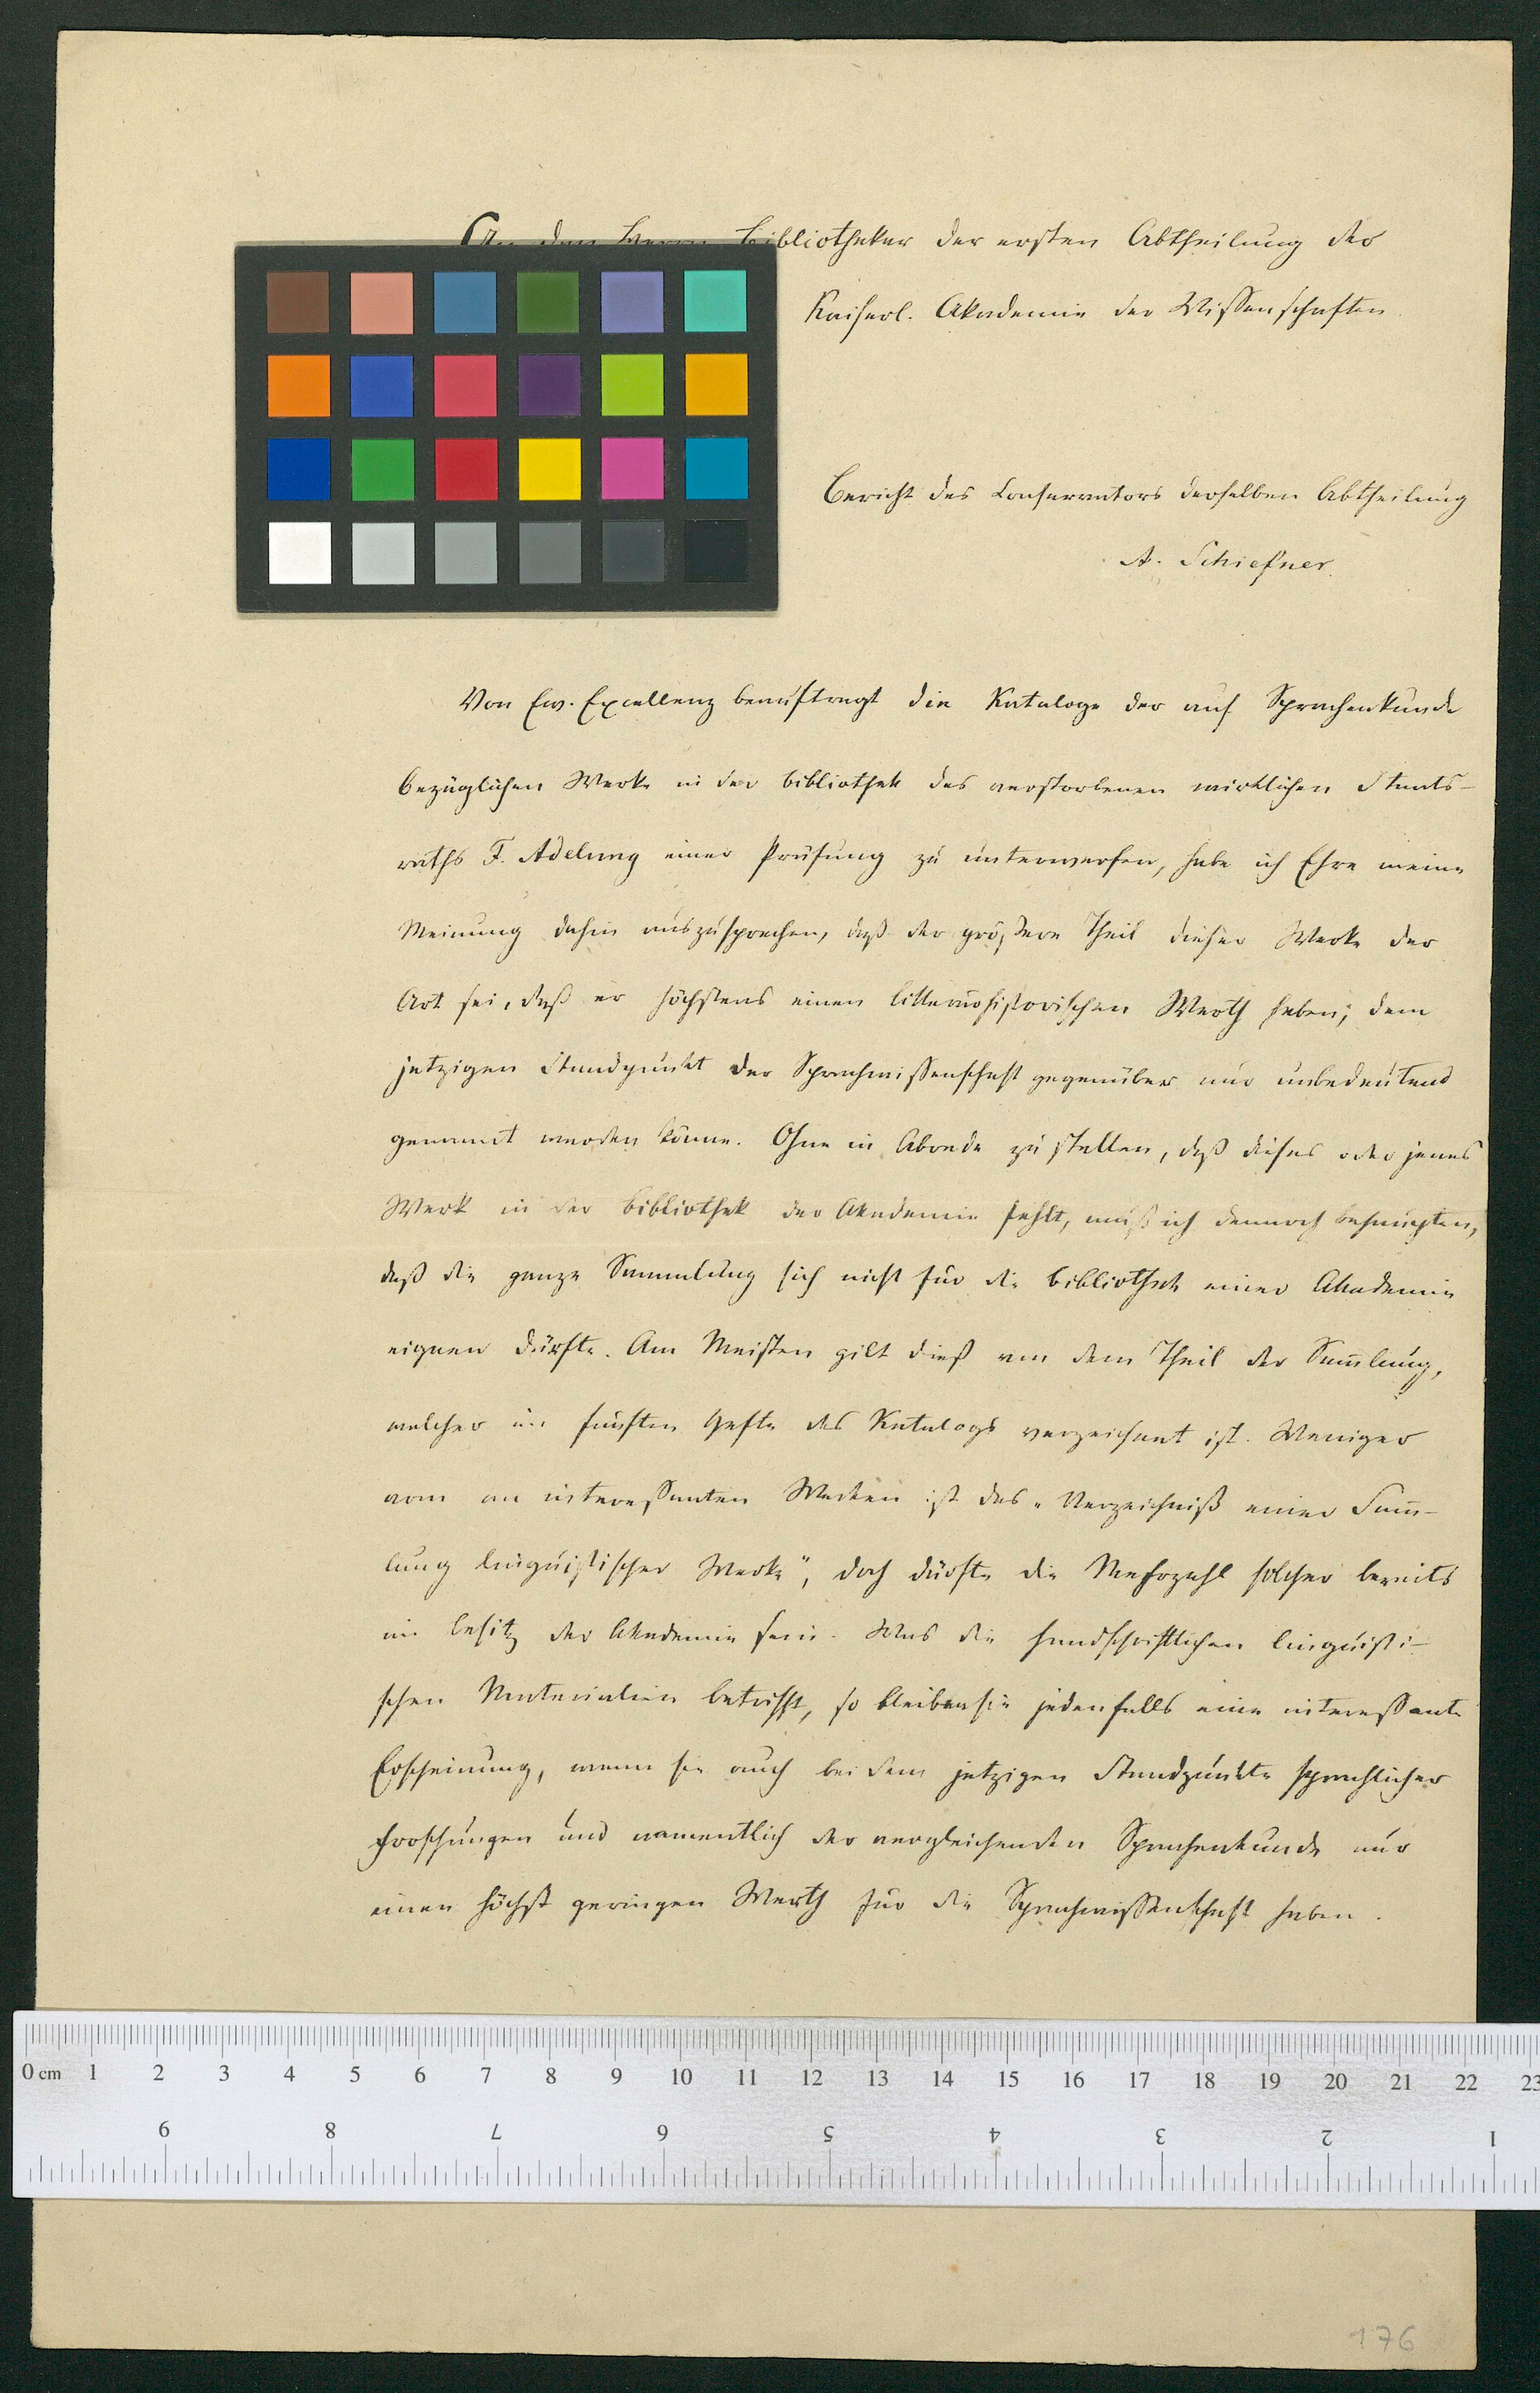 An den Herrn Bibliothekar der ersten Abtheilung der
Kaiserl. Akademie der Wissenschaften
Bericht des Conservators derselben Abtheilung
A. Schiefner.
Von Ew. Excellenz beauftragt die Kataloge der auf Sprachenkunde
bezüglichen Werke in der Bibliothek des verstorbenen wirklichen Staats-
raths F. Adelung einer Prüfung zu unterwerfen, habe ich Ehre meine
Meinung dahin auszusprechen, daß der größere Theil dieser Werke der
Art sei, daß er höchstens einen litterärhistorischen Werth habe; dem
jetzigen Standpunkt der Sprachwissenschaft gegenüber nur unbedeutend
genannt werden könne. Ohne in Abrede zu stellen, daß dieses oder jenes
Werk in der Bibliothek der Akademie fehlt, muß ich dennoch behaupten,
daß die ganze Sammlung sich nicht für die Bibliothek einer Akademie
eignen dürfte. Am Meisten gilt dieß von dem Theil der Sam̅lung,
welcher im fünften Hefte des Katalogs verzeichnet ist. Weniger
arm an interessanten Werken ist das „Verzeichniß einer Sam̅-
lung linguistischer Werke", doch dürfte die Mehrzahl solcher bereits
im Besitz der Akademie sein. Was die handschriftlichen linguisti-
schen Materialien betrifft, so bleiben sie jedenfalls eine interessante
Erscheinung, wenn sie auch bei dem jetzigen Standpunkte sprachlicher
Forschungen und namentlich der vergleichenden Sprachenkunde nur
einen höchst geringen Werth für die Sprachwissenschaft haben.
0 cm 1 2 3 4 5 6 7 8 9 10 11 12 13 14 15 16 17 18 19 20 21 22 23
9 8 7 6 5 4 3 2 1
176